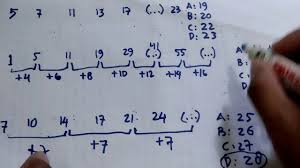 5 7 11 13 17 (...) 23
A: 19
B: 20
C: 22
D: 23
1 5 11 19 29 (...) 55 (...)
41
+4 +6 +8 +10 +12 +14 +16
A:
B:
C:
D:
7 10 14 17 21 24 (...)
+7 +7 +7
A: 25
B: 26
C: 27
D: 28